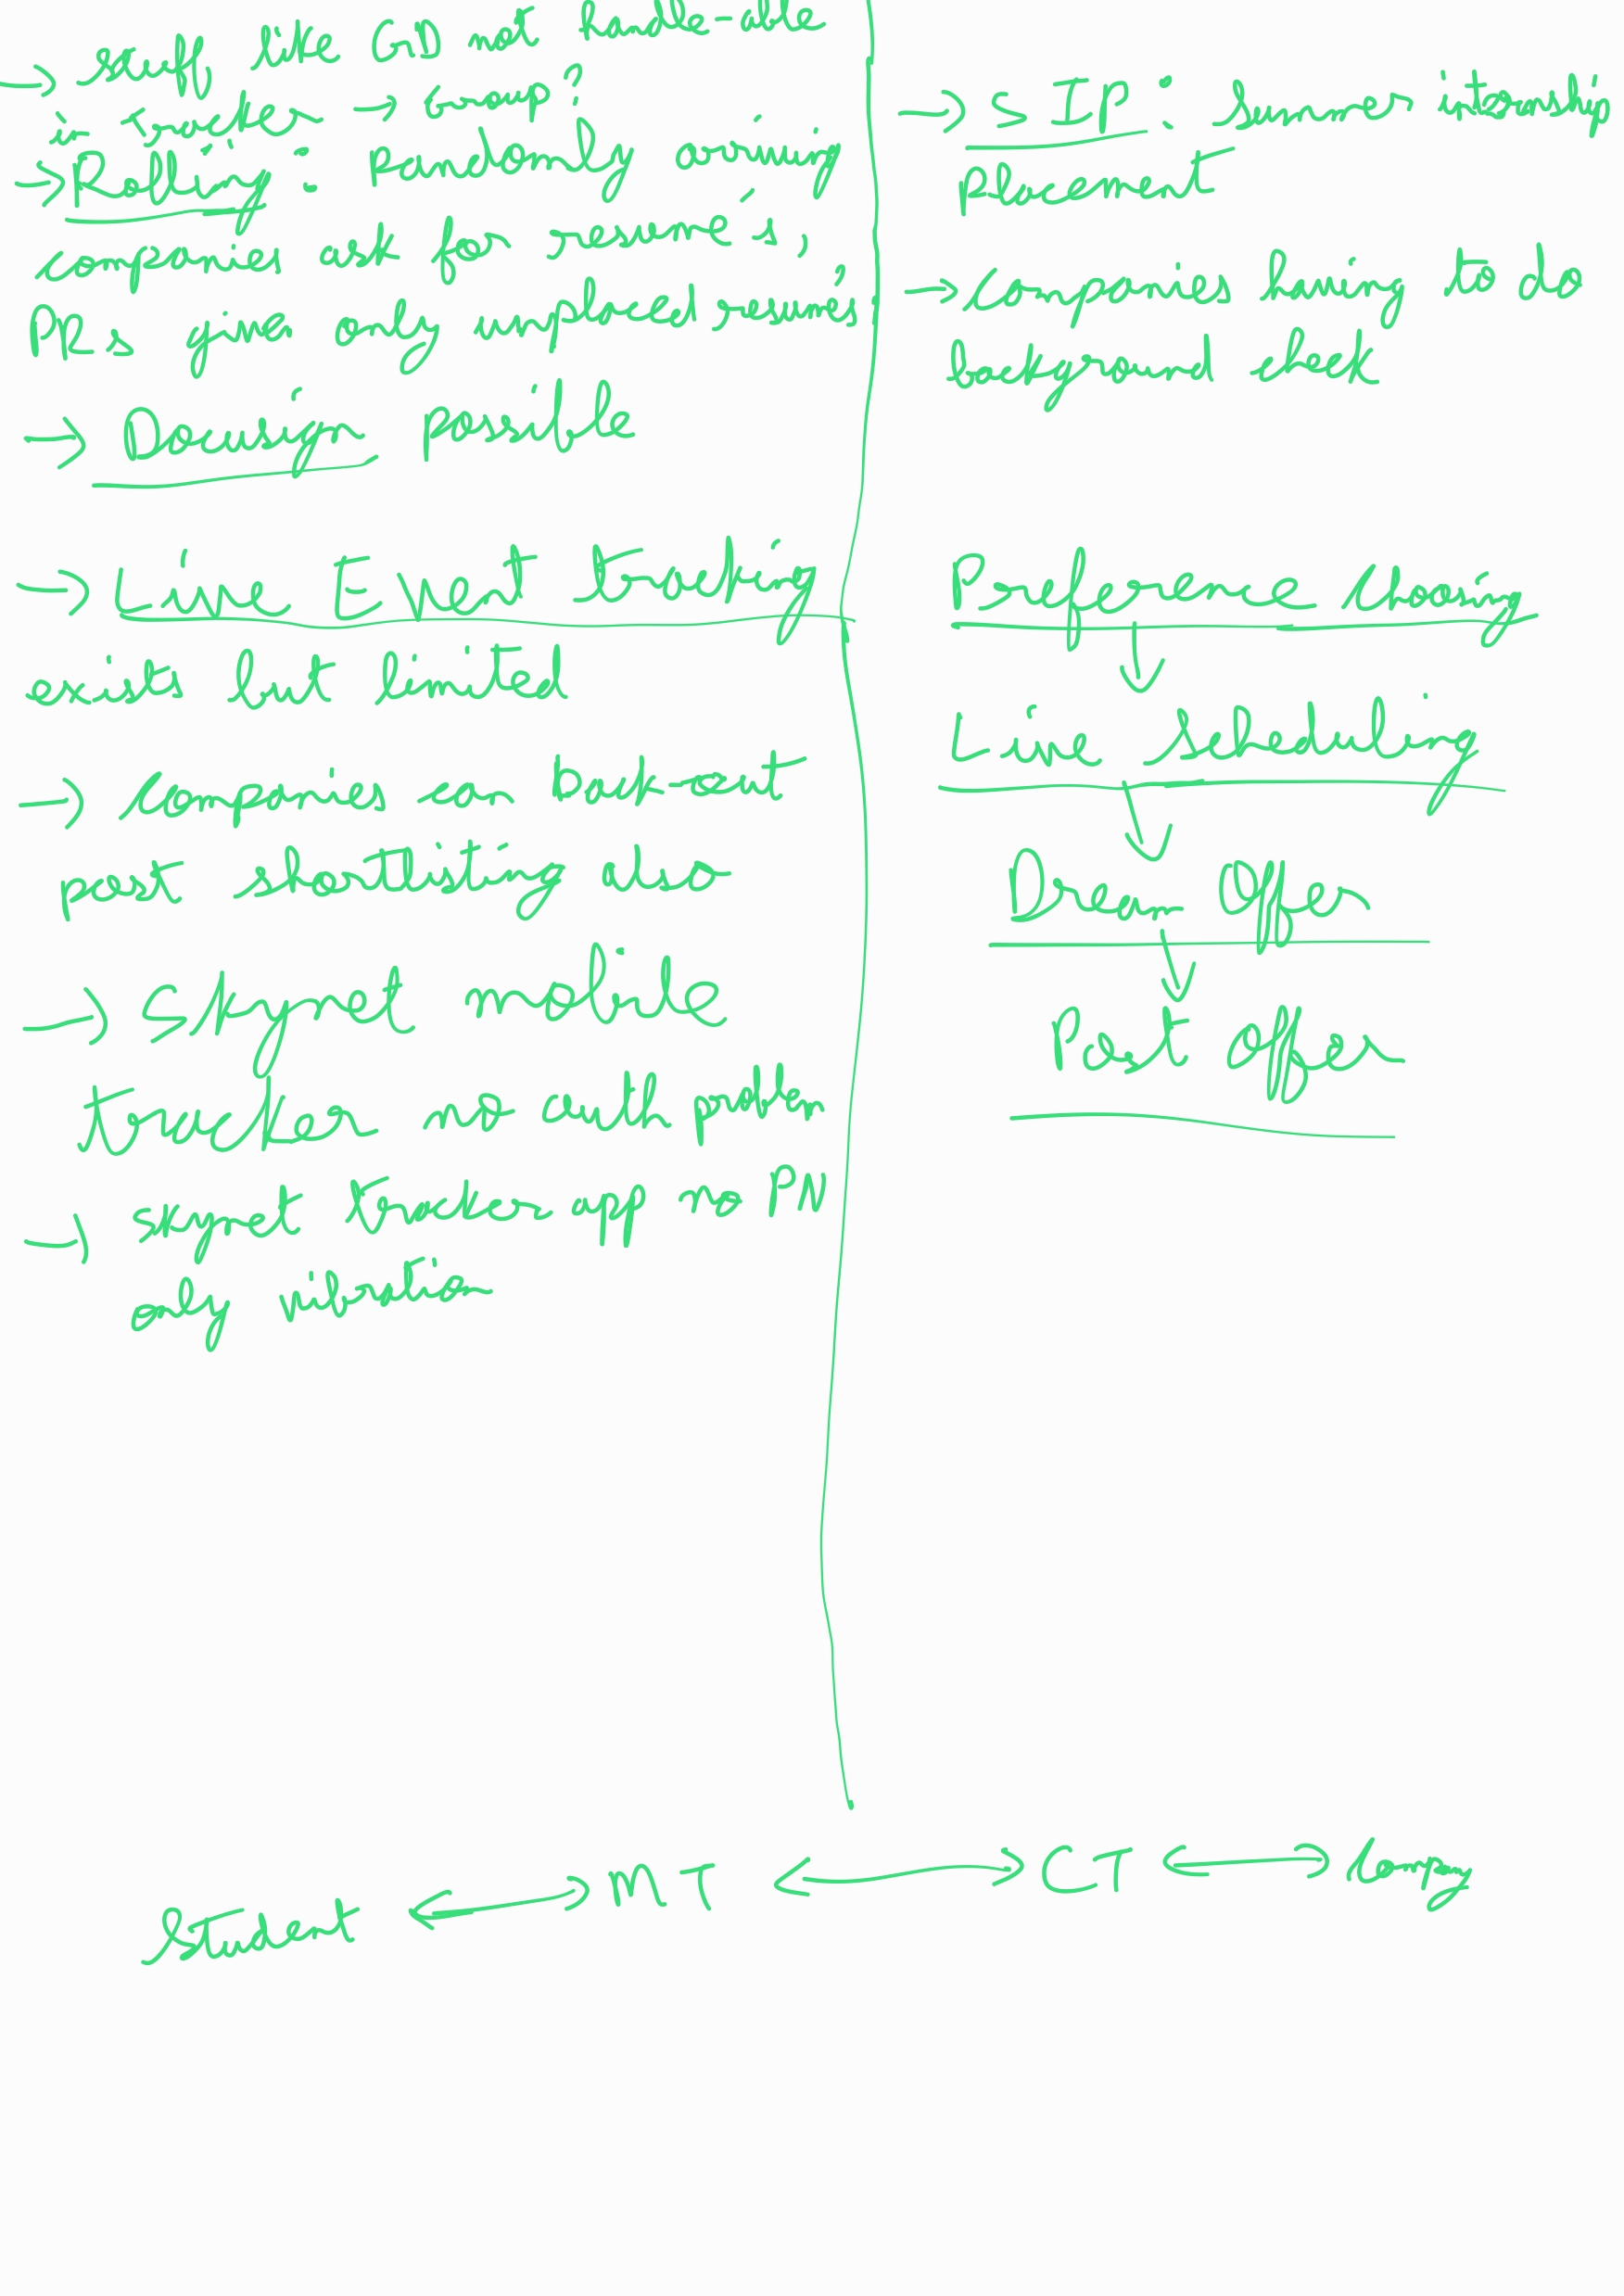 → stuff like CDN not
in transfer → iamp;
→ Polling: Randomly arriving;
companies ask for resume's,
PRs give only uploaded resume;
→ Design possible
→ Live Event tracking
exists but limited
→ companies can bulk-out
post shortlisting also
→ Skynet mobile
tracker no call problem
→ skynet tracker app no PN
only vibration
→ SIP: Summer internship
Placement
→ Companies hiring to do
background check
Preference Library
↓
Live Scheduling
↓
Dream Offer
↓
Post offer
Student ↔ MT ↔ CT ↔ Comp